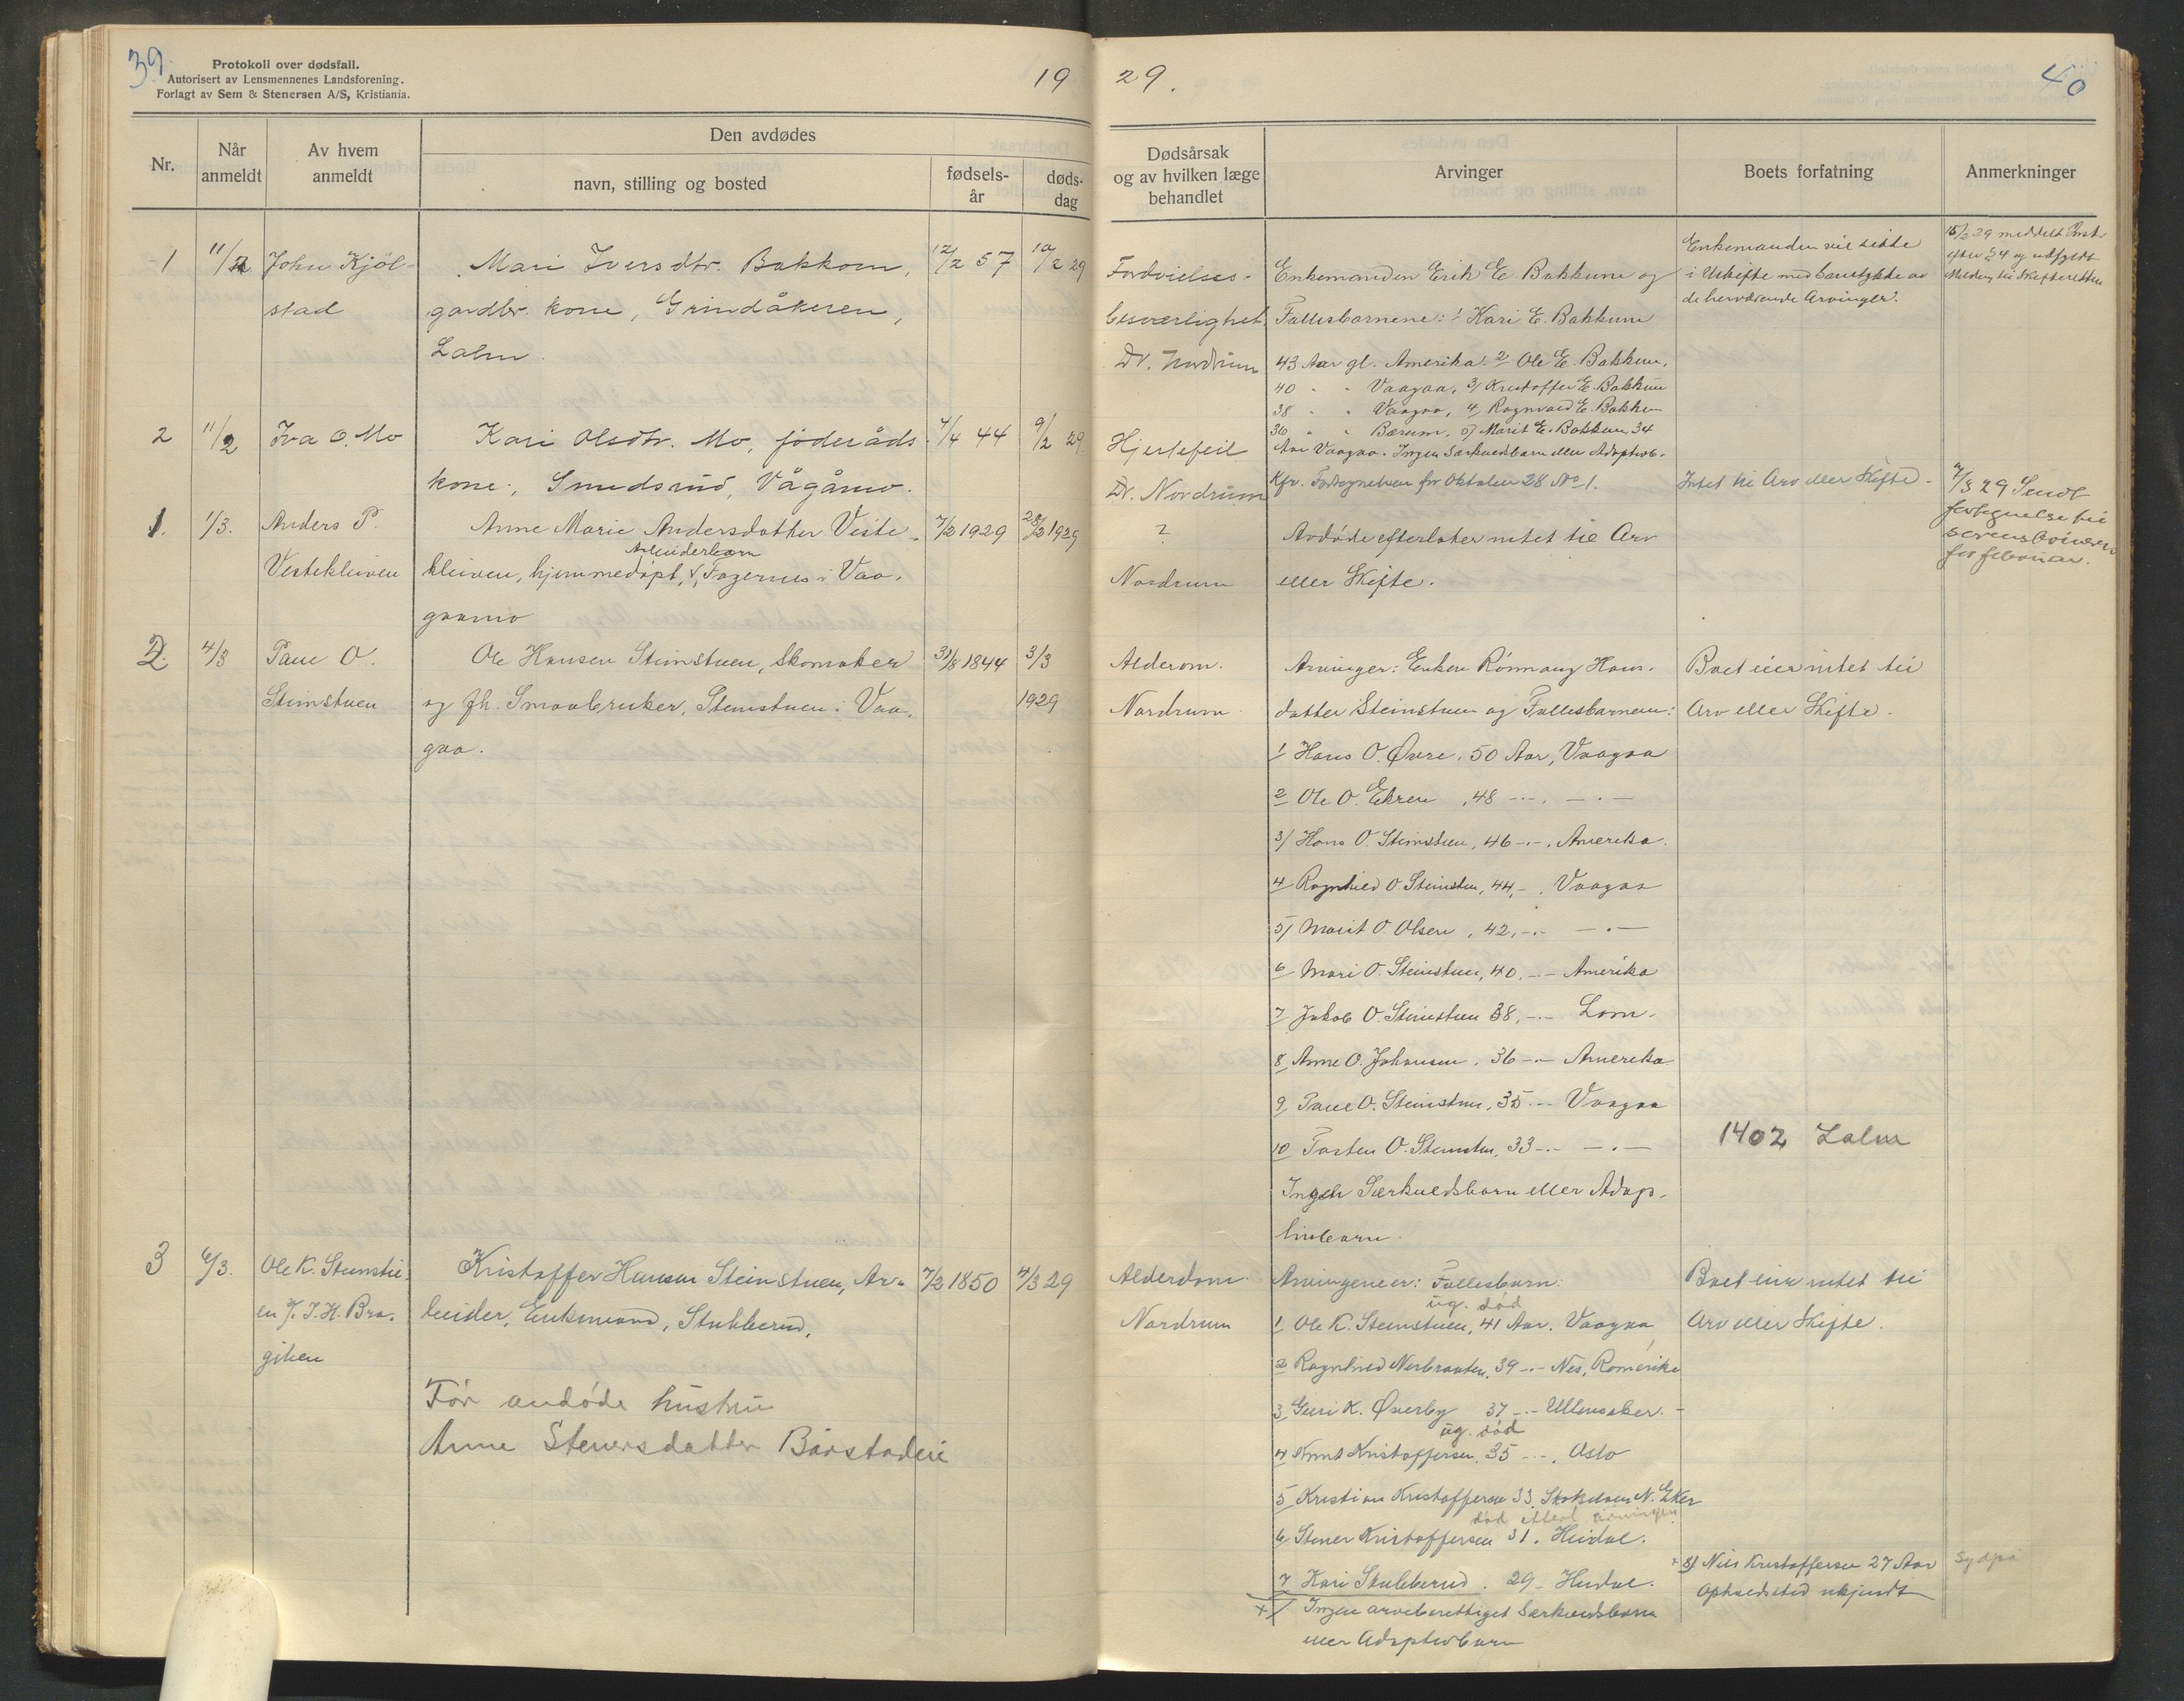 39.
Protokoll over dødsfall.
Autorisert av Lensmennenes Landsforening.
Forlagt av Sem & Stenersen A/S, Kristiania.
19 29.
40
Nr.
Når anmeldt
Av hvem anmeldt
Den avdødes
navn, stilling og bosted
fødsels-år
døds-dag
Dødsårsak
og av hvilken læge
behandlet
Arvinger
Boets forfatning
Anmerkninger
1 11/2 John Kjöl-
stad
Mari Iversdtr. Bakkom,
gardbr. kone, Grindåkeren,
Lalm.
12/2 57 10/2 29
Fordöielses-
besværlighet
Dr. Nordrum
Enkemanden Erik E. Bakkum og
Fællesbarnene: 1 Kari E. Bakkum
43 Aar gl. Amerika. 2 Ole E. Bakkum,
40 - - Vaagaa, 3/ Kristoffer E. Bakkum
38 - - Vaagaa, 4, Ragnvald E. Bakkum
36 - - Bærum, 5/ Marit E. Bakkum 34
Aar Vaagaa. Ingen Særkuldsbarn eller Adoptivb.
Enkemanden vil sitte
i Uskifte med Samtykke av
de herværende Arvinger.
15/2 29 meddelt
efter § 4 og utfyldt
Melding til Skifteretten
2 11/2 Iva O. Mo
Kari Olsdtr. Mo, föderåds-
kone, Smedsrud, Vågåmo.
4/4 44 9/2 29
Hjertefeil
Dr. Nordrum
Kfr. Fortegnelsen for Oktober 28 No 1.
Intet til Arv eller Skifte.
4/3 29 Sendt
fortegnelse til
sorenskriveren
for februar.
1. 1/3. Anders P.
Vestekleiven
Anne Marie Andersdatter Veste-
Arbeiderbarn
kleiven, hjemmedöpt, v, Fagernes i Vaa-
gaamo
7/2 1929 28/2 1929
?
Nordrum
Avdöde efterlater intet til Arv
eller Skifte.
2. 4/3 Paul O.
Steinstuen
Ole Hansen Steinstuen, Skomaker
og fh. Smaabruker, Steinstuen i Vaa-
gaa.
31/8 1844 3/3
1929
Alderdom.
Nordrum
Arvinger: Enken Rönnaug Hans-
datter Steinstuen og Fællesbarnene:
1 Hans O. Øvre, 50 Aar, Vaagaa
2 Ole O. Ekren, 48 -.-. - . -
3/ Hans O. Steinstuen, 46 -.-. Amerika.
4 Ragnhild O Steinstuen, 44, -. Vaagaa
5/ Marit O. Olsen, 42, -.- - . -
6 Mari O. Steinstuen, 40. -.- Amerika
7 Jakob O. Steinstuen 38, -.- Lom.
8, Anne O. Johansen, 36 -.- Amerika
9, Paul O. Steinstuen, 35 -.- Vaagaa
10 Torsten O. Steinstuen, 33 -.- - . -
Ingen Særkuldsbarn eller Adop-
tivbarn.
Boet eier intet til
Arv eller Skifte.
1402 Lalm
3 6/3. Ole K. Steinstu-
en v/ I. H. Bra-
given
Kristoffer Hansen Steinstuen, Ar-
beider, Enkemand, Stubberud.
Før avdöde hustru
Anne Stenersdatter Bårstadeie
7/2 1850 4/3 29
Alderdom.
Nordrum
Arvingene er: Fællesbarn.
ug. död
1 Ole K. Steinstuen, 41 Aar. Vaagaa
2 Ragnhild Nerbraaten, 39 -.- Nes, Romerike
3 Guri K. Øverby 37 -.- Ullensaker.
ug. död
4 Knut Kristoffersen, 35 -.-. Oslo
5 Kristian Kristoffersen 33. N. Eker
död etterl arvinger
6 Stener Kristoffersen 31. Heidal.
7 Kari Stubberud. 29 - Heidal.
x/ Ingen arveberettiget Særkuldsbarn
eller Adoptivbarn
Boet eier intet til
Arv eller Skifte.
x 8/ Nils Kristoffersen 27 Aar
Opholdssted ukjendt
Sydpå